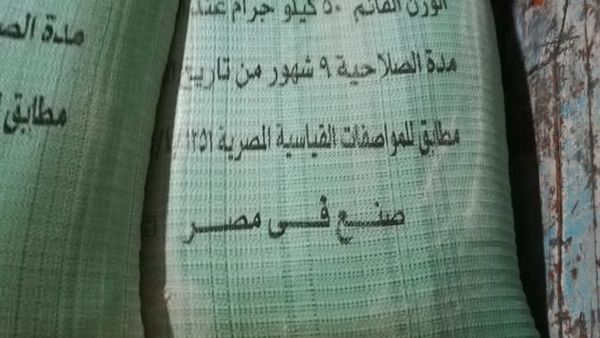 الوزن القائم ٥٠ كيلو جرام عند
مدة الصلاحية ٩ شهور من تاريخ
مطابق للمواصفات القياسية المصرية ١٢٥١
صنع فى مصر
مدة
مطابق